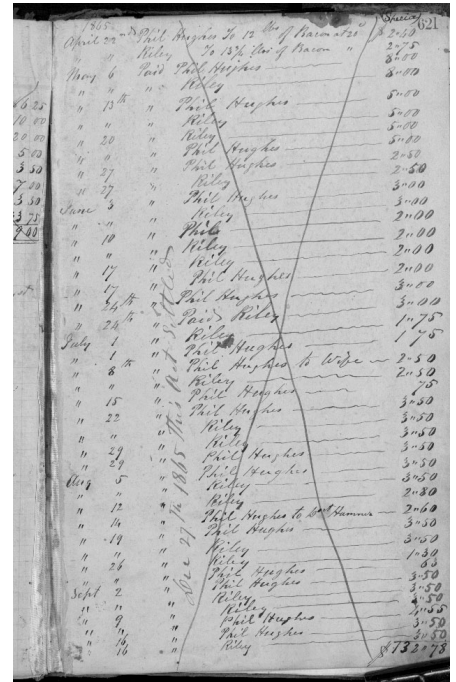 621
1865 Specie
April 22nd Phil Hughes To 12 lbs of Bacon at 20 $2.40
" " Riley To 13¾ lbs of Bacon " 2.75
May 6 Paid Phil Hughes 8.00
" " " Riley 8.00
" 13th " Phil Hughes 5.00
" " " Riley 5.00
" 20 " Riley 5.00
" " " Phil Hughes 5.00
" 27 " Phil Hughes 2.50
" 27 " Riley 2.50
June 3 " Phil Hughes 3.00
" " " Riley 3.00
" 10 " Phil 2.00
" " " Riley 2.00
" " " Riley 2.00
" 17 " Phil Hughes 2.00
" 17 " Phil Hughes 3.00
" 24th " Paid Riley 3.00
" 24th " Riley 1.75
July 1 " Phil Hughes 1 75
" 1 " Phil Hughes to Wife 2.50
" 8th " Riley 2.50
" " " Phil Hughes 75
" 15 " Phil Hughes 3.50
" 22 " Riley 3.50
" " " Riley 3.50
" 29 " Phil Hughes 3.50
" 29 " Phil Hughes 3.50
Aug 5 " Riley 3.50
" " " Riley 2.80
" 12 " Phil Hughes to Hammer 2.60
" 14 " Phil Hughes 3.50
" 19 " Riley 3.50
" " " Riley 1.30
" 26 " Phil Hughes 63
" " " Phil Hughes 3.50
Sept 2 " Riley 3.50
" " " Riley 3.50
" 9 " Phil Hughes 4.55
" " " Phil Hughes 3.50
" 16 " Riley 3.50
" 16 " $132.78
Dec 29th 1865 This Act Settled
6 25
10 00
20 00
5 00
3 50
7 00
3 50
33 75
9 00